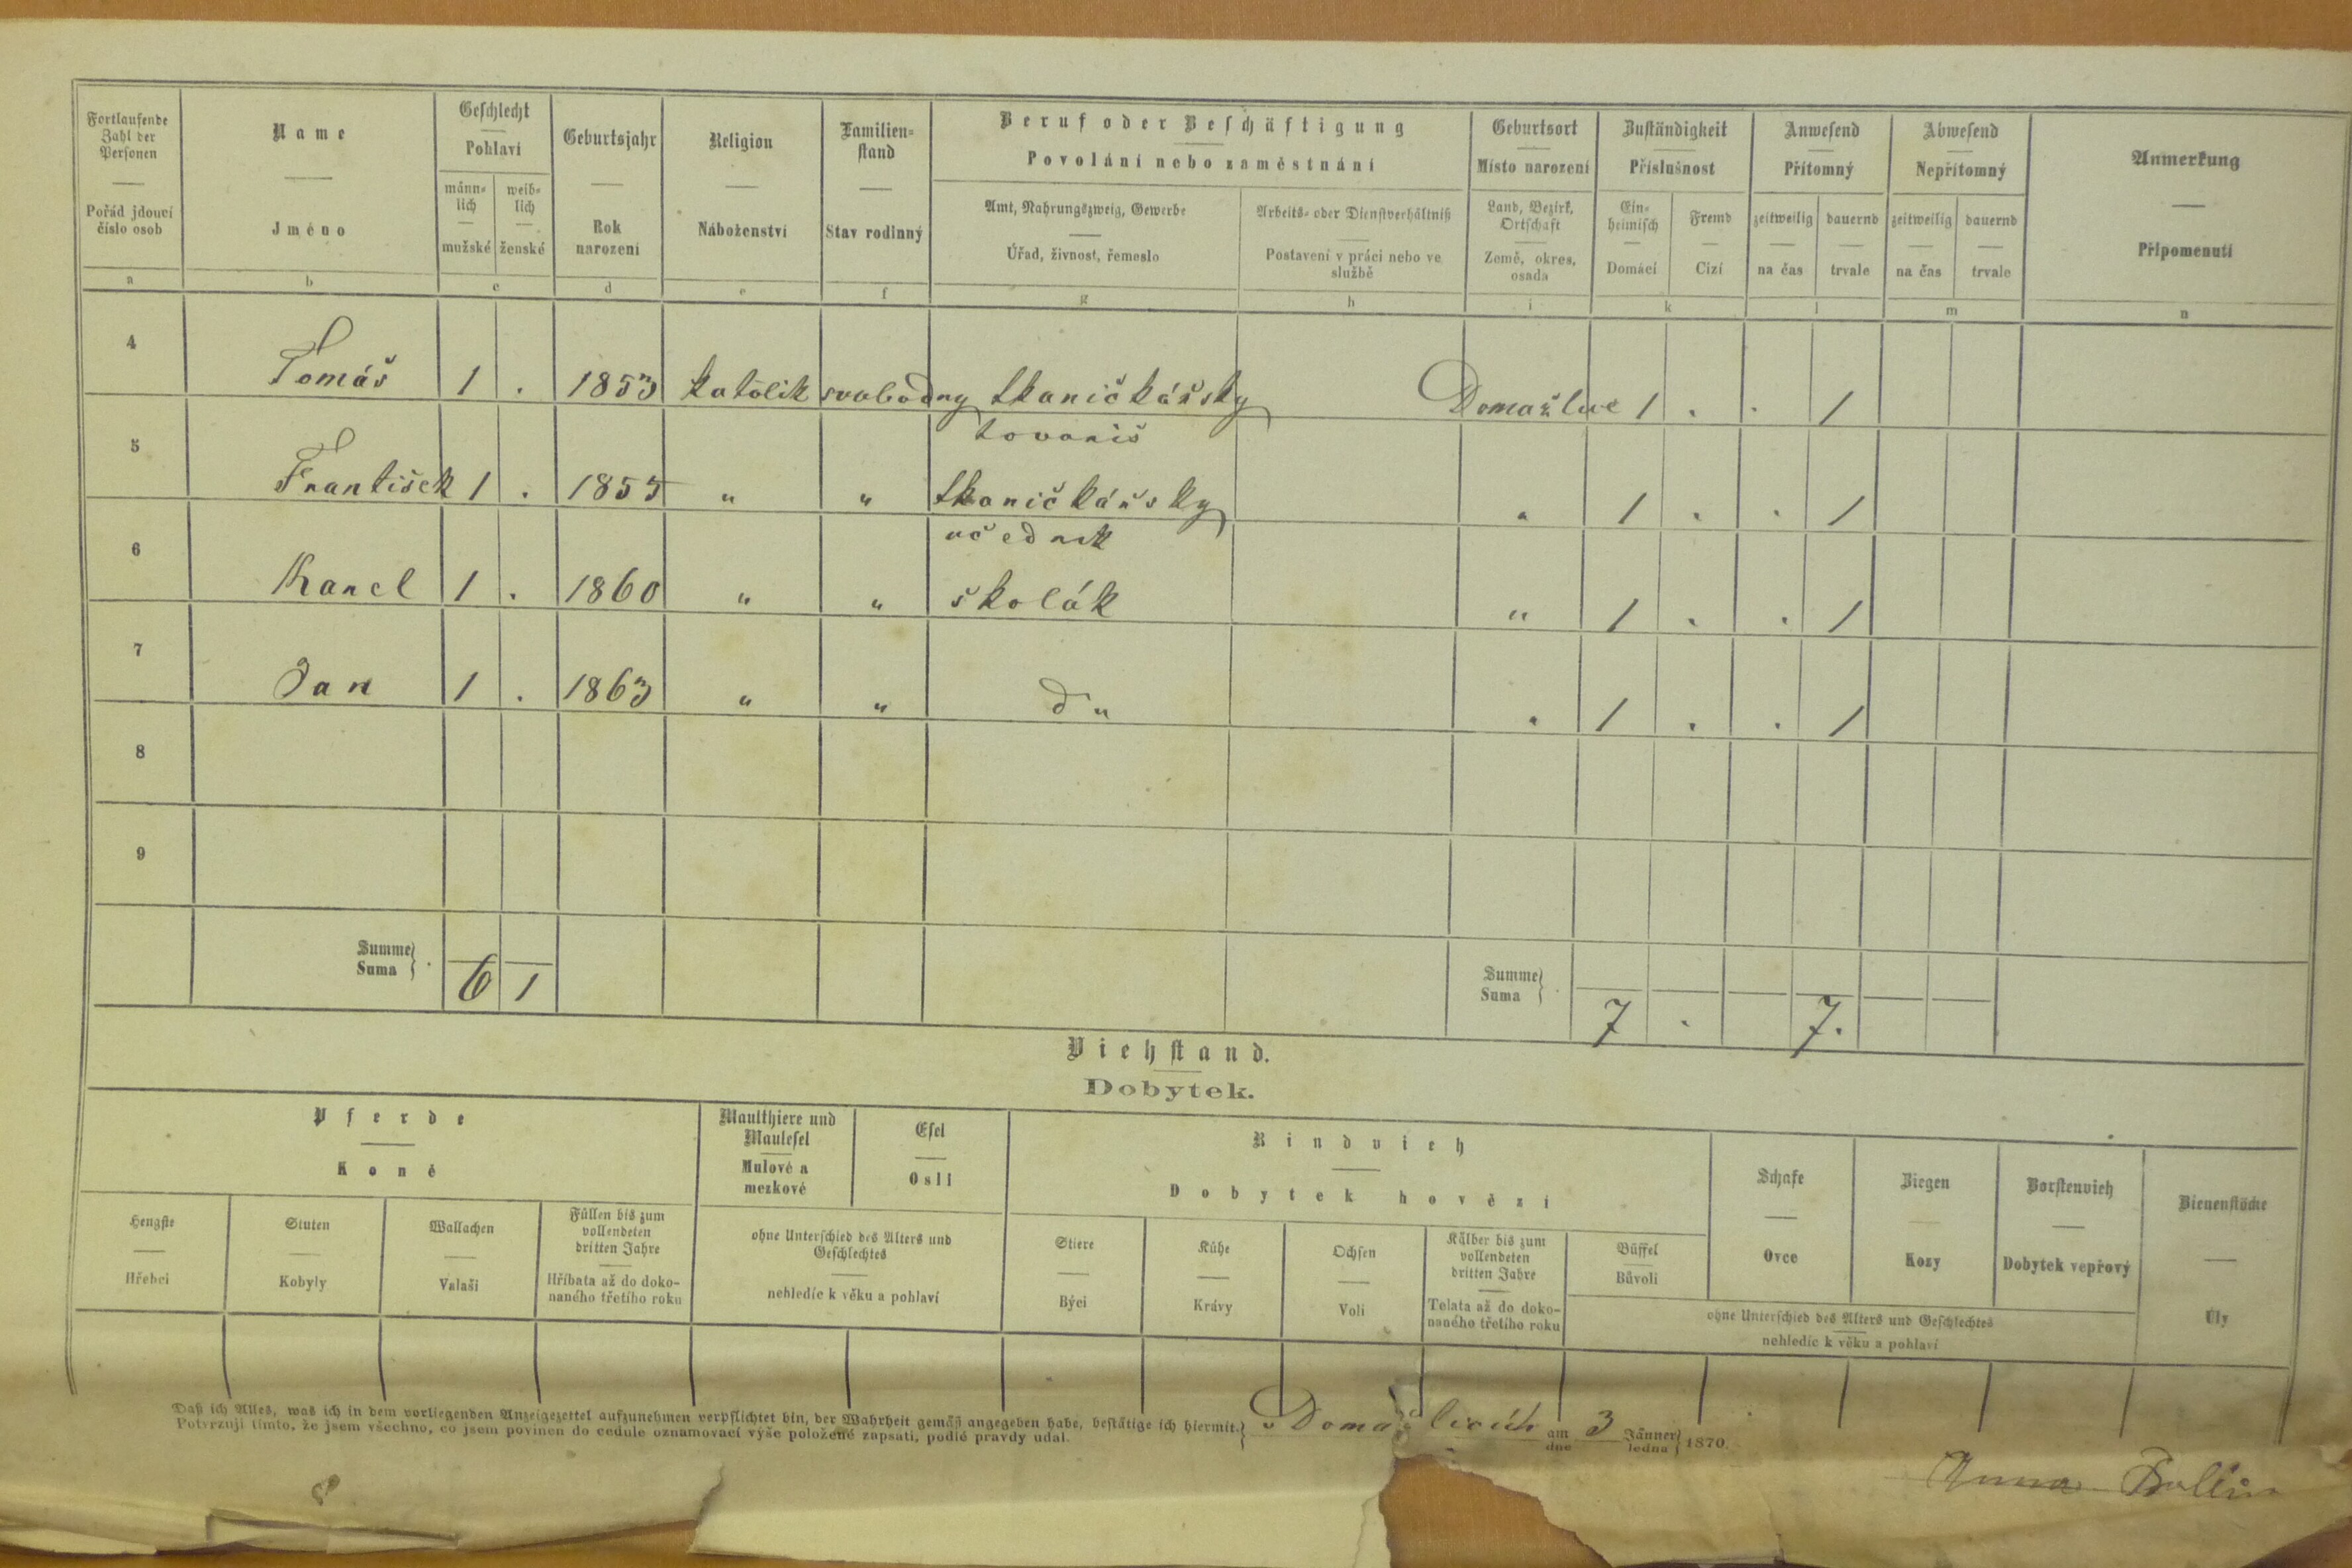 Fortlaufende Zahl der Personen
Pořád jdoucí číslo osob
Name
Jméno
Geschlecht
Pohlaví
männlich
mužské
weiblich
ženské
Geburtsjahr
Rok narození
Religion
Náboženství
Familienstand
Stav rodinný
Beruf oder Beschäftigung
Povolání nebo zaměstnání
Amt, Nahrungszweig, Gewerbe
Úřad, živnost, řemeslo
Arbeits- oder Dienstverhältniß
Postavení v práci nebo ve službě
Geburtsort
Místo narození
Land, Bezirk, Ortschaft
Země, okres, osada
Zuständigkeit
Příslušnost
Einheimisch
Domácí
Fremd
Cizí
Anwesend
Přítomný
zeitweilig
na čas
dauernd
trvale
Abwesend
Nepřítomný
zeitweilig
na čas
dauernd
trvale
Anmerkung
Připomenutí
a b c d e f g h i k l m n
4 Tomáš 1 . 1853 katolik svobodny tkaničkářsky Domažlice 1 . . 1
tovariš
5 František 1 . 1855 " " tkaničkářsky " 1 . . 1
učednik
6 Karel 1 . 1860 " " školák " 1 . . 1
7 Jan 1 . 1863 " " d" " 1 . . 1
8
9
Summe
Suma
6 1
Summe
Suma
7 . 7.
Viehstand.
Dobytek.
Pferde
Koně
Hengste
Hřebci
Stuten
Kobyly
Wallachen
Valaši
Füllen bis zum vollendeten dritten Jahre
Hříbata až do dokonaného třetího roku
Maulthiere und Maulesel
Mulové a mezkové
Esel
Osli
ohne Unterschied des Alters und Geschlechtes
nehledíc k věku a pohlaví
Rindvieh
Dobytek hovězí
Stiere
Býci
Kühe
Krávy
Ochsen
Voli
Kälber bis zum vollendeten dritten Jahre
Telata až do dokonaného třetího roku
Büffel
Bůvoli
Schafe
Ovce
Ziegen
Kozy
Borstenvieh
Dobytek vepřový
ohne Unterschied des Alters und Geschlechtes
nehledíc k věku a pohlaví
Bienenstöcke
Úly
Daß ich Alles, was ich in dem vorliegenden Anzeigezettel aufzunehmen verpflichtet bin, der Wahrheit gemäß angegeben habe, bestätige ich hiermit.
Potvrzuji tímto, že jsem všechno, co jsem povinen do cedule oznamovací výše položené zapsati, podlé pravdy udal.
v Domažlicích am dne 3 Jänner ledna 1870.
Anna